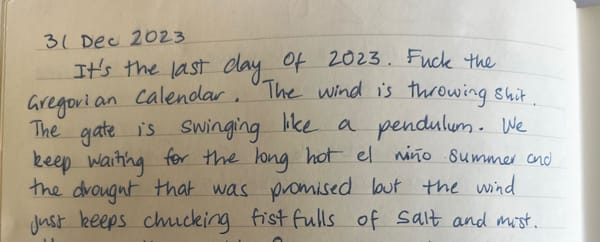 31 Dec 2023
It's the last day of 2023. Fuck the
Gregorian Calendar. The wind is throwing shit.
The gate is swinging like a pendulum. We
keep waiting for the long hot el niño summer and
the drought that was promised but the wind
just keeps chucking fistfulls of salt and mist.